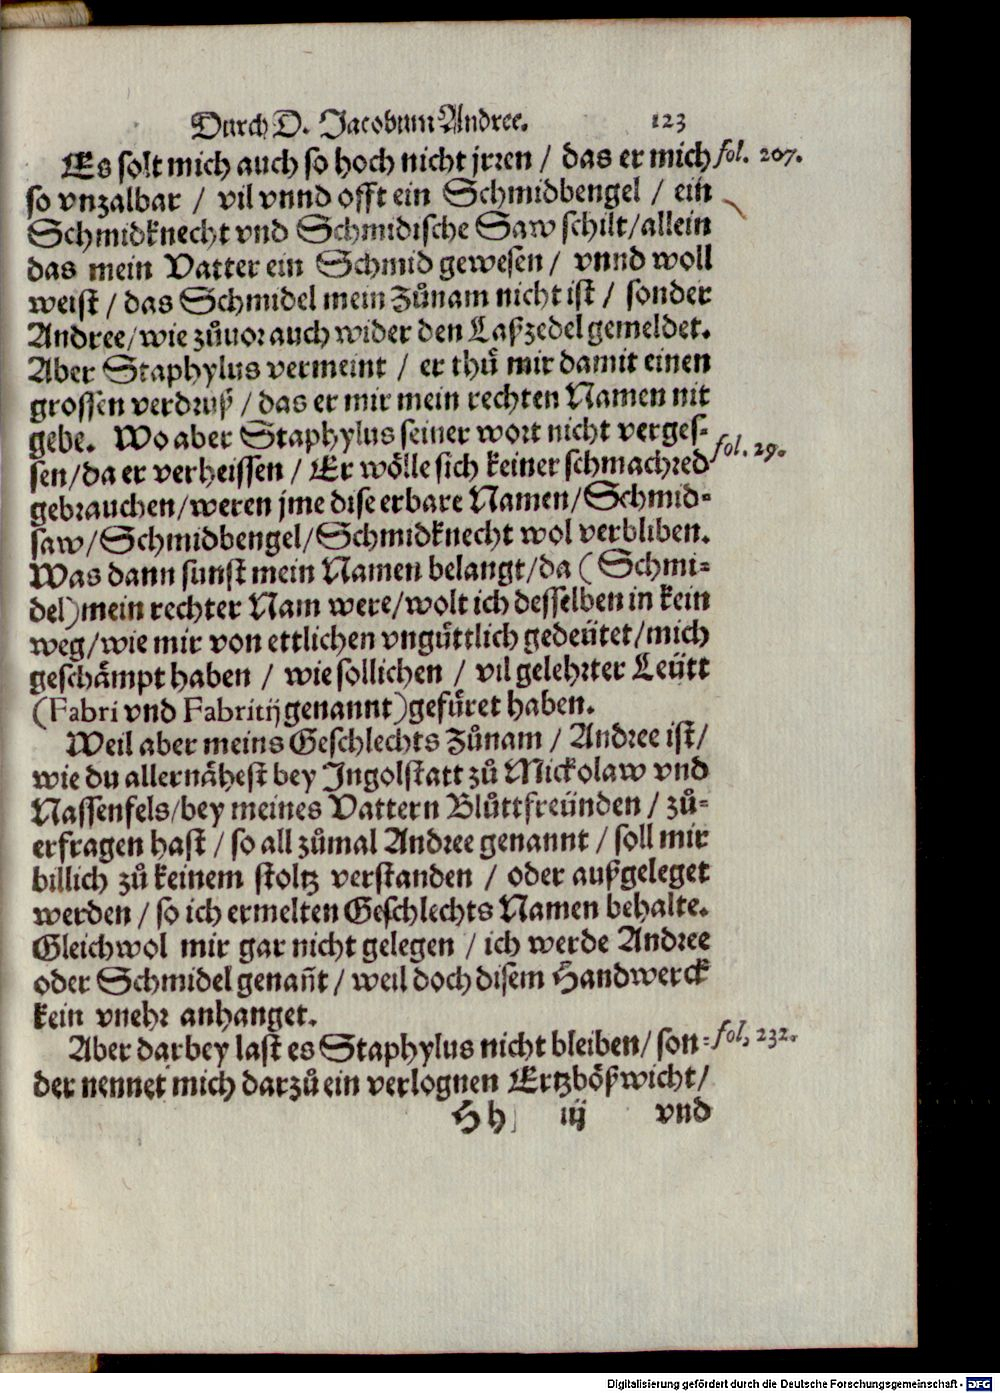 Durch D. Jacobum Andree. 123
Es solt mich auch so hoch nicht jrren / das er mich fol. 207.
so vnzalbar / vil vnnd offt ein Schmidbengel / ein
Schmidknecht vnd Schmidische Saw schilt/allein
das mein Vatter ein Schmid gewesen / vnnd woll
weist / das Schmidel mein Zůnam nicht ist / sonder
Andree/wie zůuor auch wider den Laßzedel gemeldet.
Aber Staphylus vermeint / er thů mir damit einen
grossen verdruß / das er mir mein rechten Namen nit
gebe. Wo aber Staphylus seiner wort nicht verges-
sen/da er verheissen / Er wölle sich keiner schmachred fol. 29.
gebrauchen/weren jme dise erbare Namen/Schmid-
saw/Schmidbengel/Schmidknecht wol verbliben.
Was dann sunst mein Namen belangt/da (Schmi-
del) mein rechter Nam were/wolt ich desselben in kein
weg/wie mir von ettlichen vngüttlich gedeütet/mich
geschämpt haben / wie sollichen / vil gelehrter Leütt
(Fabri vnd Fabritij genannt) gefüret haben.
Weil aber meins Geschlechts Zůnam / Andree ist/
wie du allernähest bey Ingolstatt zů Mickolaw vnd
Nassenfels/bey meines Vattern Blůttfreünden / zů-
erfragen hast / so all zůmal Andree genannt / soll mir
billich zů keinem stoltz verstanden / oder außgeleget
werden / so ich ermelten Geschlechts Namen behalte.
Gleichwol mir gar nicht gelegen / ich werde Andree
oder Schmidel genañt / weil doch disem Handwerck
kein vnehr anhanget.
Aber darbey last es Staphylus nicht bleiben/ son- fol. 232.
der nennet mich darzů ein verlognen Ertzbößwicht/
Hh iij vnd
Digitalisierung gefördert durch die Deutsche Forschungsgemeinschaft - DFG